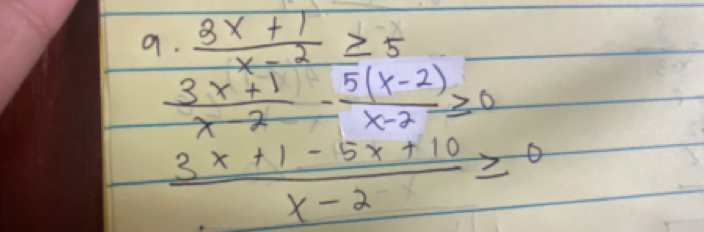 9. (3x + 1)/(x - 2) ≥ 5
(3x + 1)/(x - 2) - (5(x-2))/(x-2) ≥ 0
(3x + 1 - 5x + 10)/(x - 2) ≥ 0